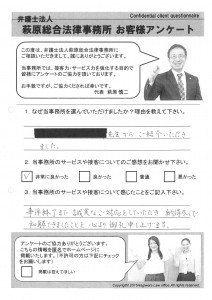 Confidential client questionnaire
弁護士法人
萩原総合法律事務所 お客様アンケート
この度は、弁護士法人萩原総合法律事務所に
ご相談いただきまして、誠にありがとうございます。
当事務所では、接客力・サービス力を強化する目的で
皆様にアンケートのご協力を頂いております。
お手数ですが、ご協力くだされば幸いです。
代表 萩原慎二
1. なぜ当事務所を選んでいただけましたか?理由を教えて下さい。
先生からご紹介いただき
ました。
2. 当事務所のサービスや接客についてのご感想をお聞かせ下さい。
✓ 非常に良かった 良かった 普通 悪かった
3. 当事務所のサービスや接客について感じたことをご記入下さい。
事件終了まで、誠実なご対応をしていただき、納得の
和解できましたこと、心より御礼申し上げます。
アンケートのご協力ありがとうございます。
こちらの情報を匿名でホームページに
掲載いたします。(不許可の方は下記にチェック
をお願いします)
掲載は控えてほしい